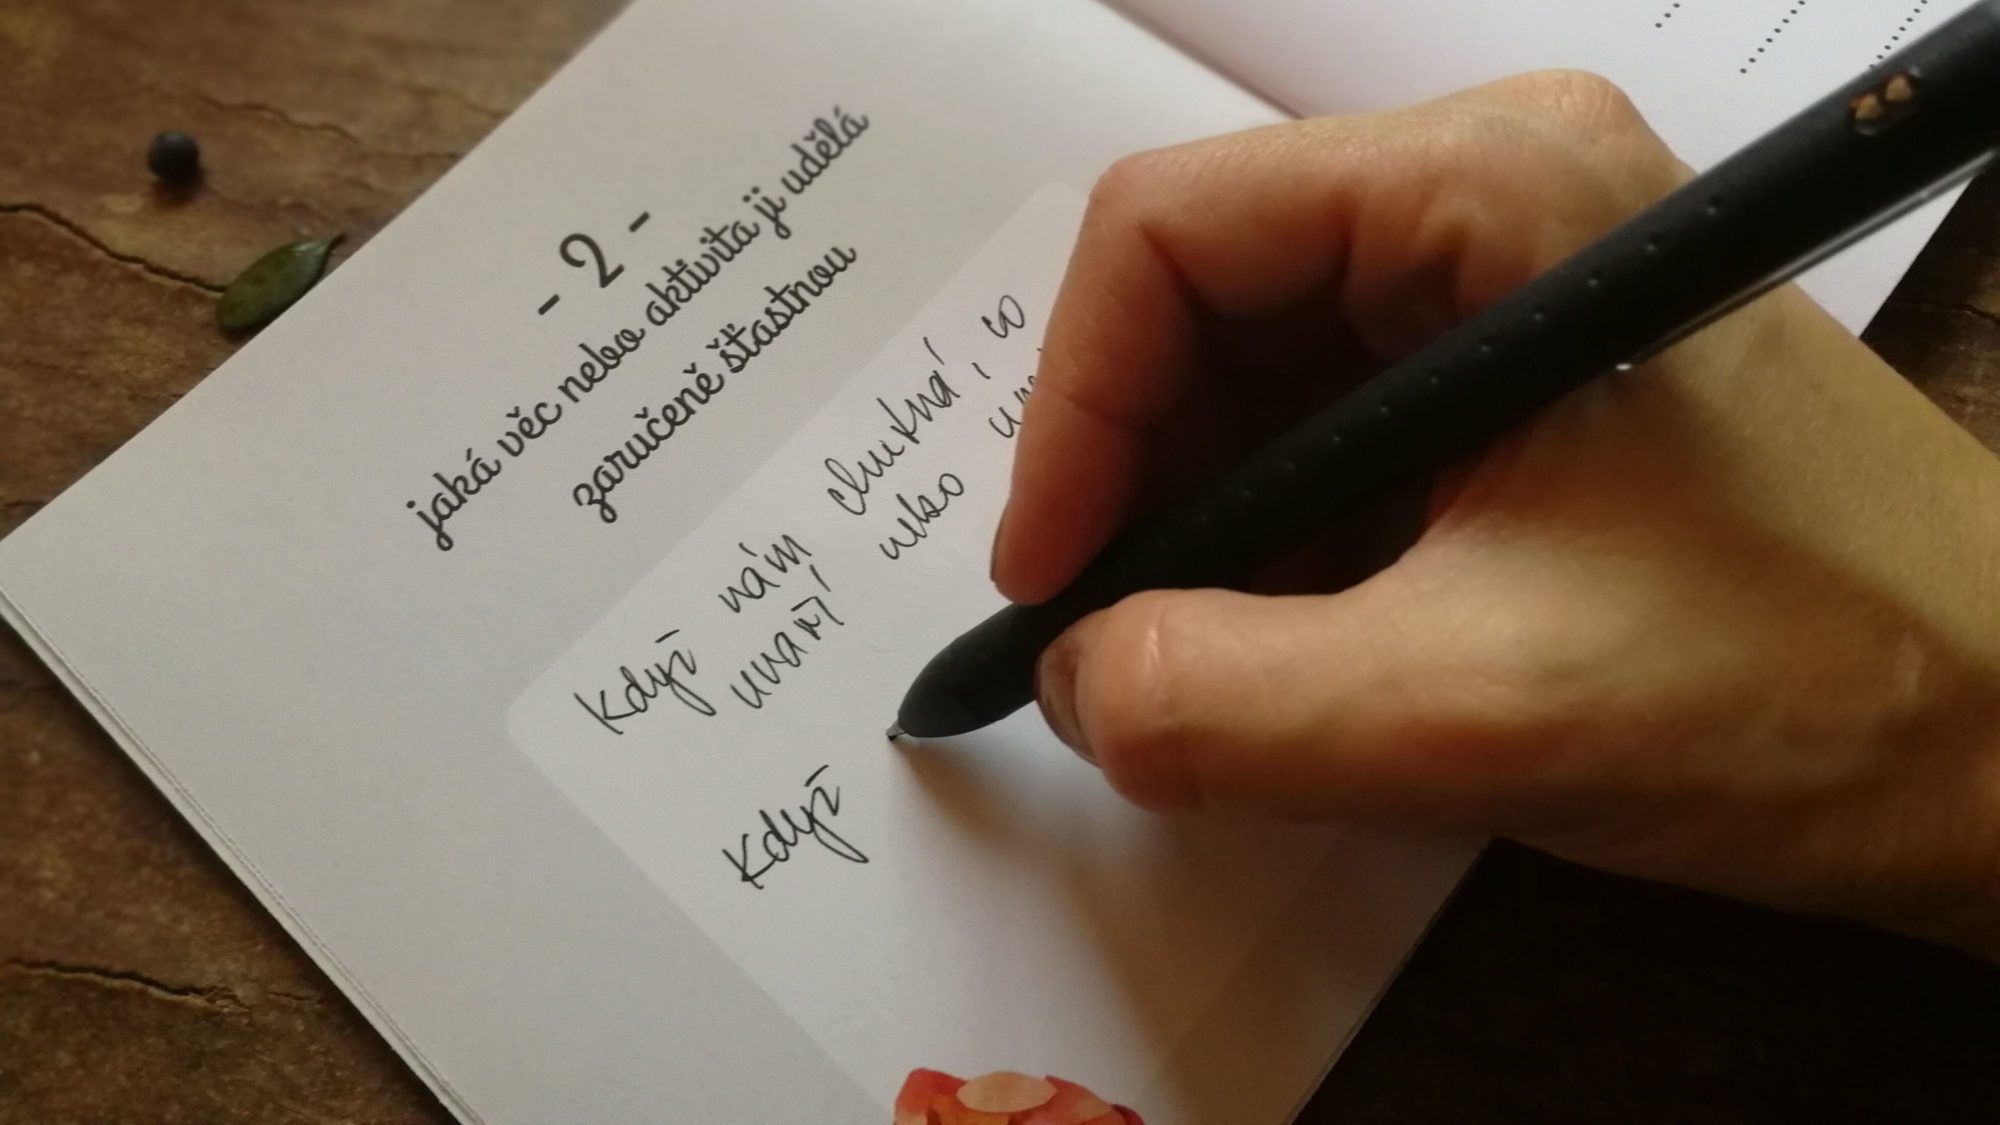 - 2 -
jaká věc nebo aktivita ji udělá
zaručeně šťastnou
Když nám chutná, co
uvaří nebo
Když